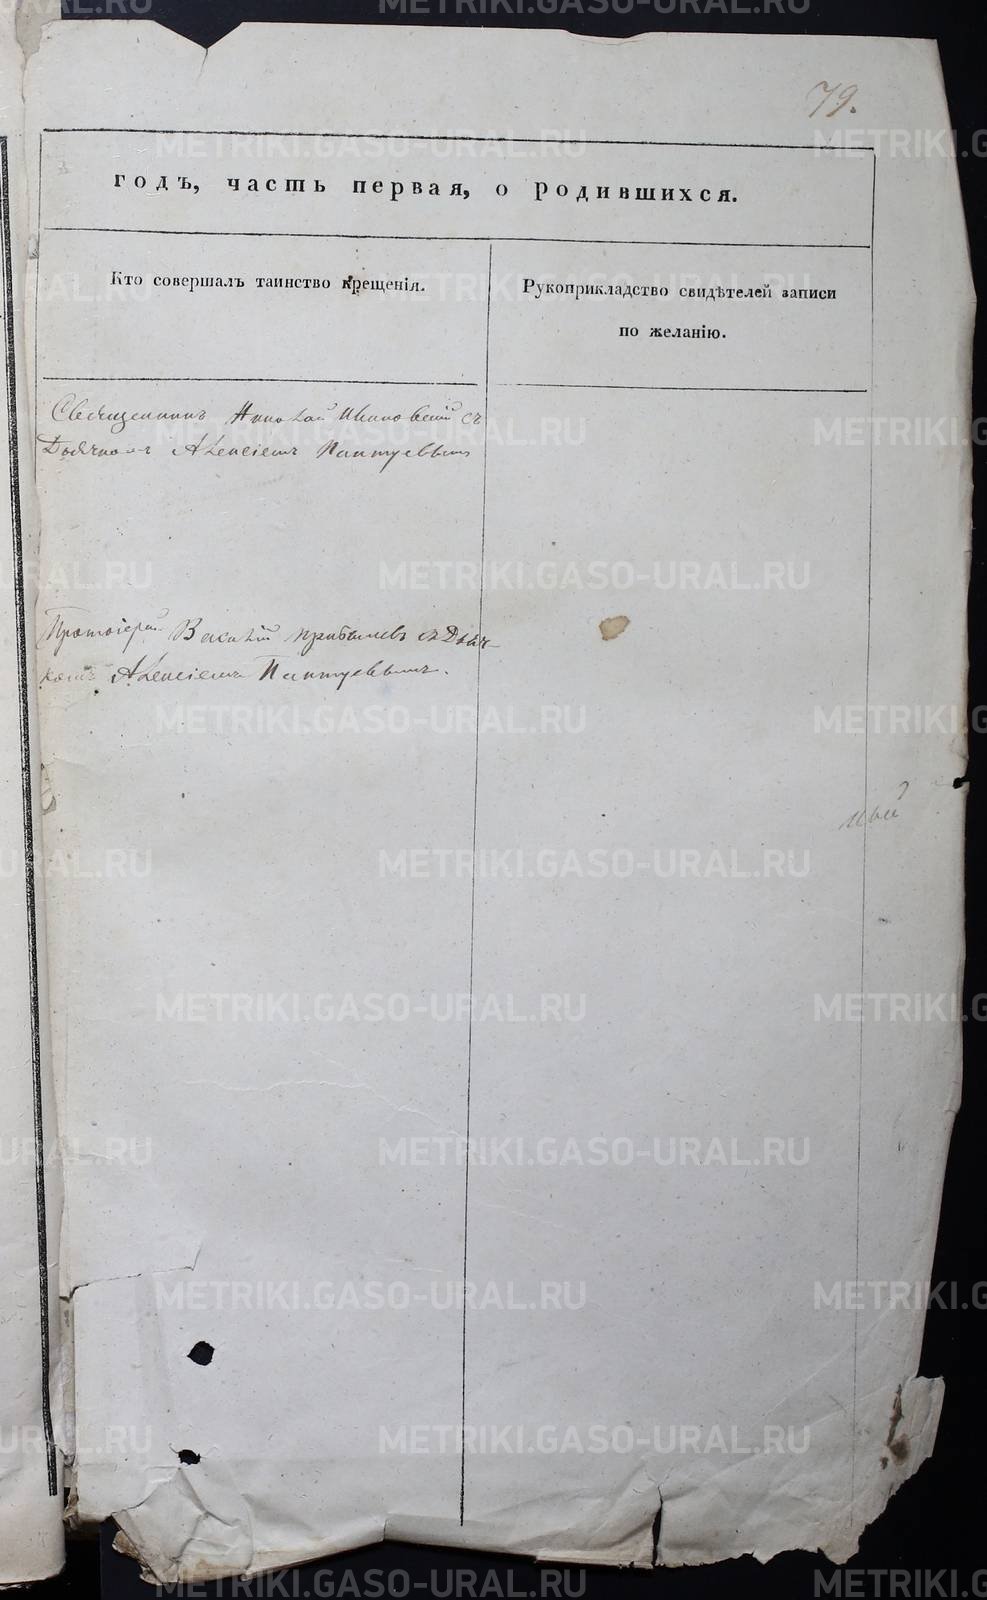 79.
годъ, часть первая, о родившихся.
Кто совершалъ таинство крещенія.
Рукоприкладство свидѣтелей записи
по желанію.
Священникъ Николай Ивановскій съ
Дьячкомъ Алексіемъ Пантуевымъ
Протоіерей Василій Прибылевъ съ Дьяч-
комъ Алексіемъ Пантуевымъ.
METRIKI.GASO-URAL.RU